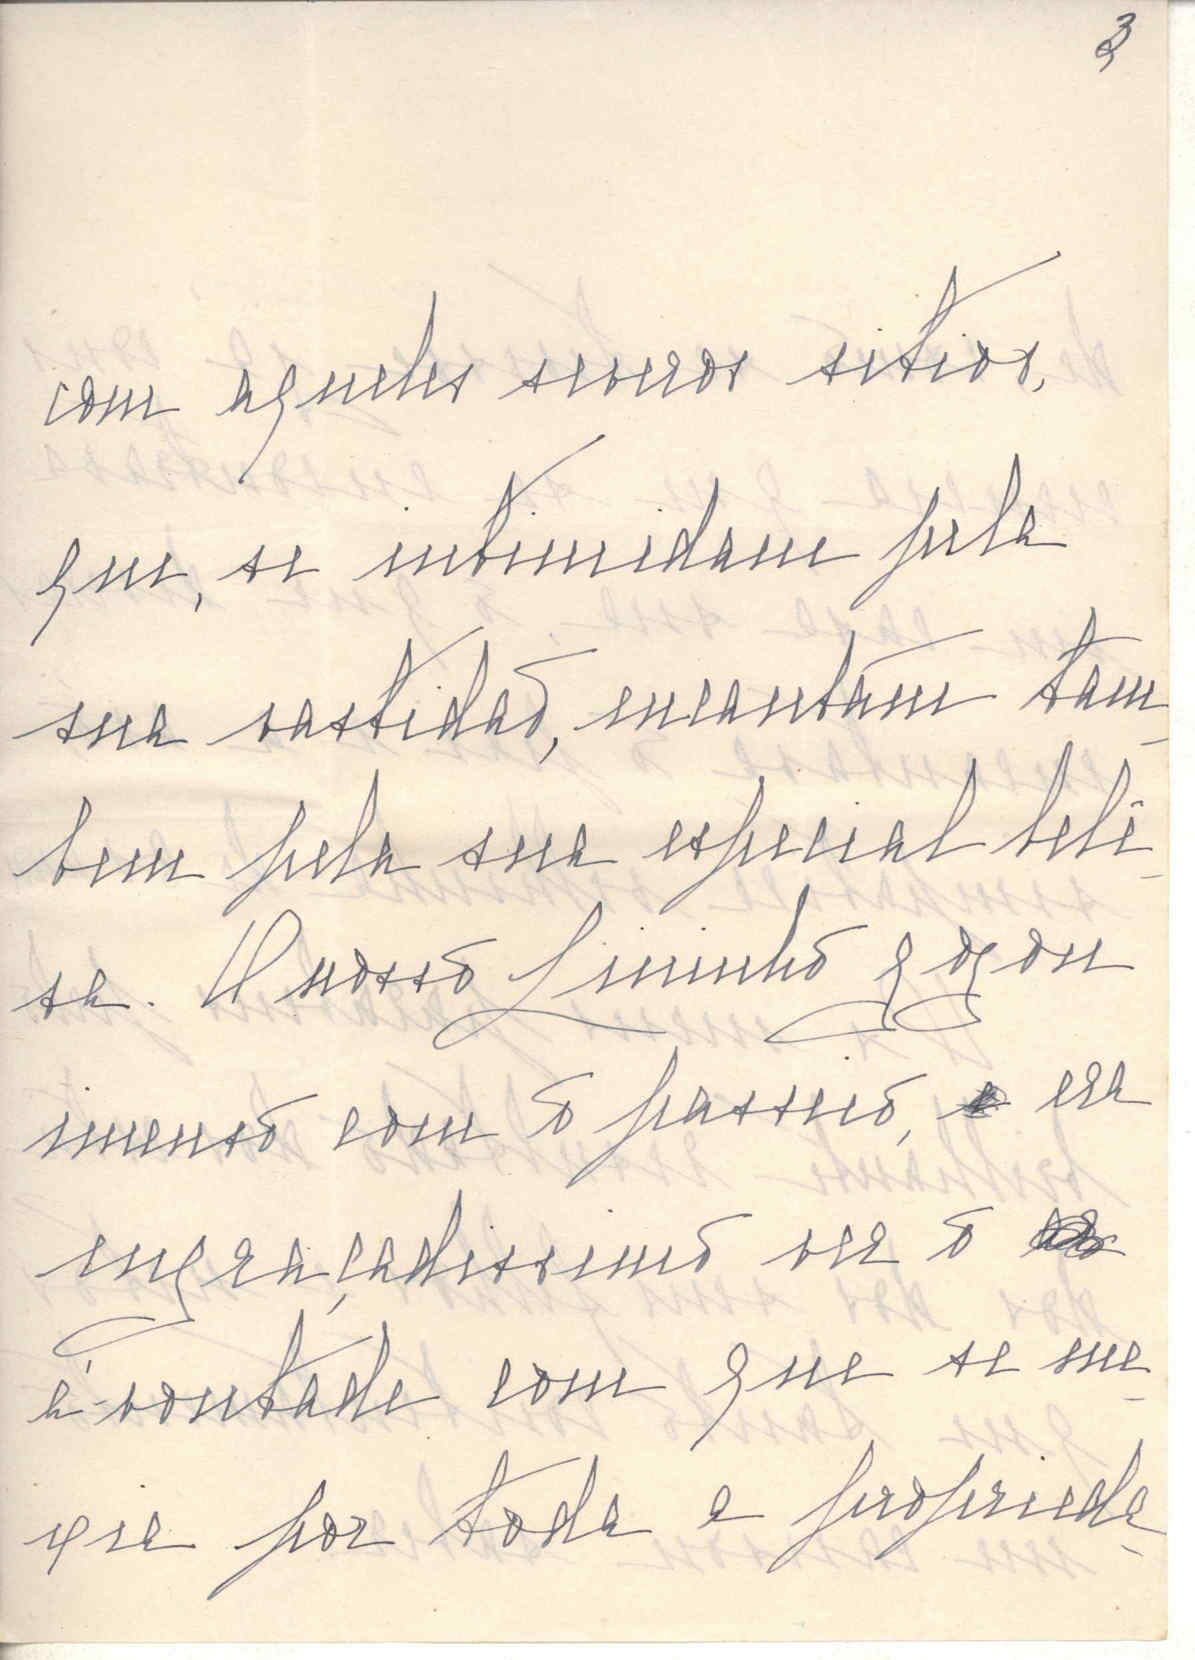 3
com aqueles severos sitios,
que, se intimidam pela
sua vastidaõ, encantam tam-
bem pela sua especial belê-
sa. O nosso Lininho gogou
imenso com o passeio, era
engraçadissimo ver o
á-vontade com que se me-
xia por toda a proprieda-